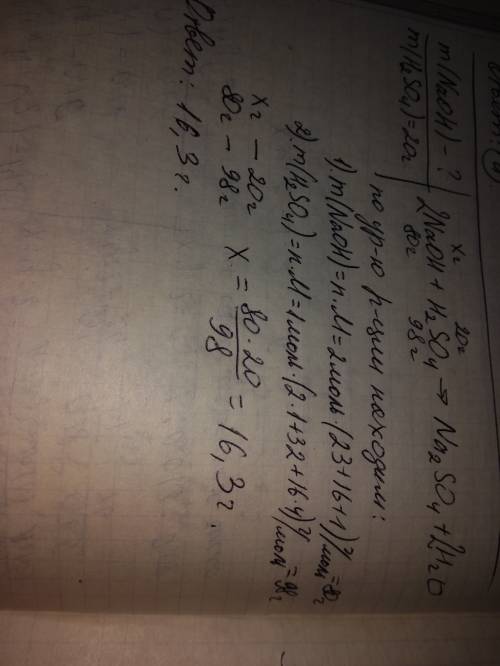 m(NaOH) - ?
m(H₂SO₄) = 20г
xг 20г
2NaOH + H₂SO₄ → Na₂SO₄ + 2H₂O
80г 98г
по ур-ю р-ции находим:
1). m(NaOH) = n·M = 2моль · (23+16+1) г/моль = 80г
2). m(H₂SO₄) = n·M = 1моль · (2·1+32+16·4) г/моль = 98г
xг – 20г
80г – 98г x = 80·20/98 = 16,3г.
Ответ: 16,3г.